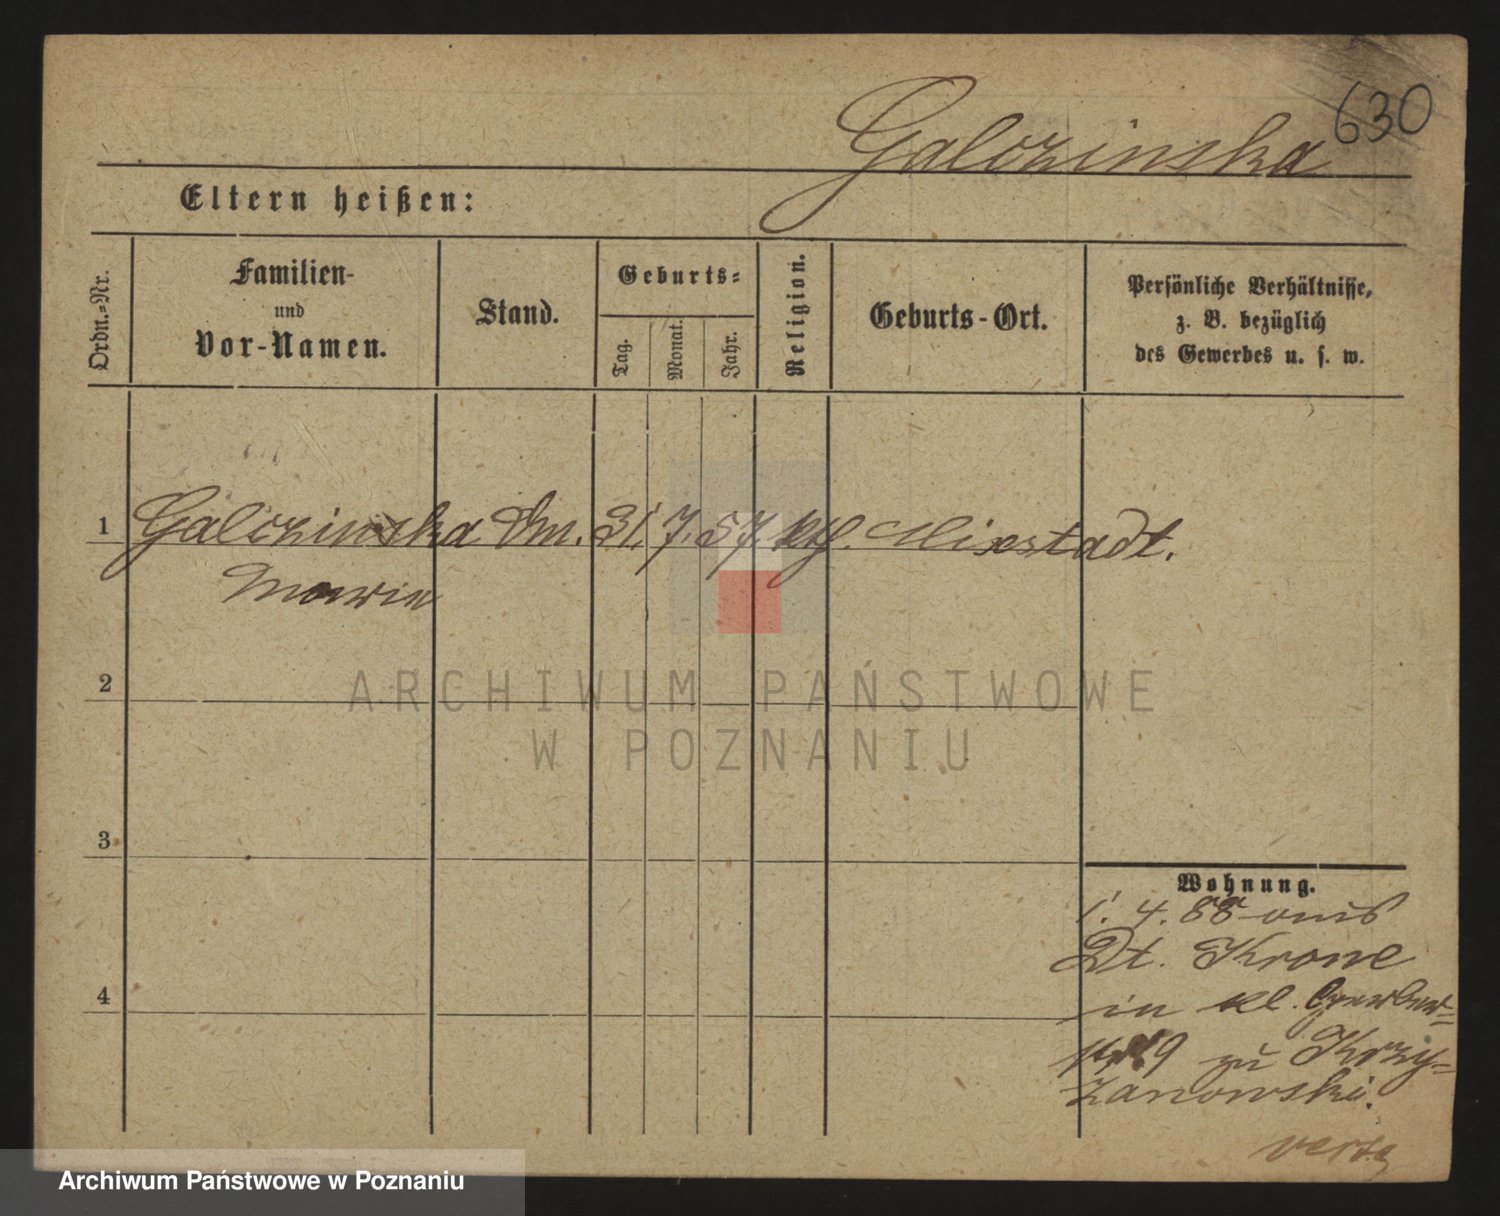 630
Galczinska
Eltern heißen:
Ordn.-Nr.
Familien-
und
Vor-Namen.
Stand.
Geburts-
Tag.
Monat.
Jahr.
Religion.
Geburts-Ort.
Persönliche Verhältnisse,
z. B. bezüglich
des Gewerbes u. s. w.
1 Galczinska Dm. 31. 7. 57. kth. Mixstadt.
Marie
2
3
4
Wohnung.
1. 4. 88 aus
Dt. Krone
in kl. Gerber-
19 zu Krzy-
zanowski.
verte
ARCHIWUM PAŃSTWOWE
W POZNANIU
Archiwum Państwowe w Poznaniu